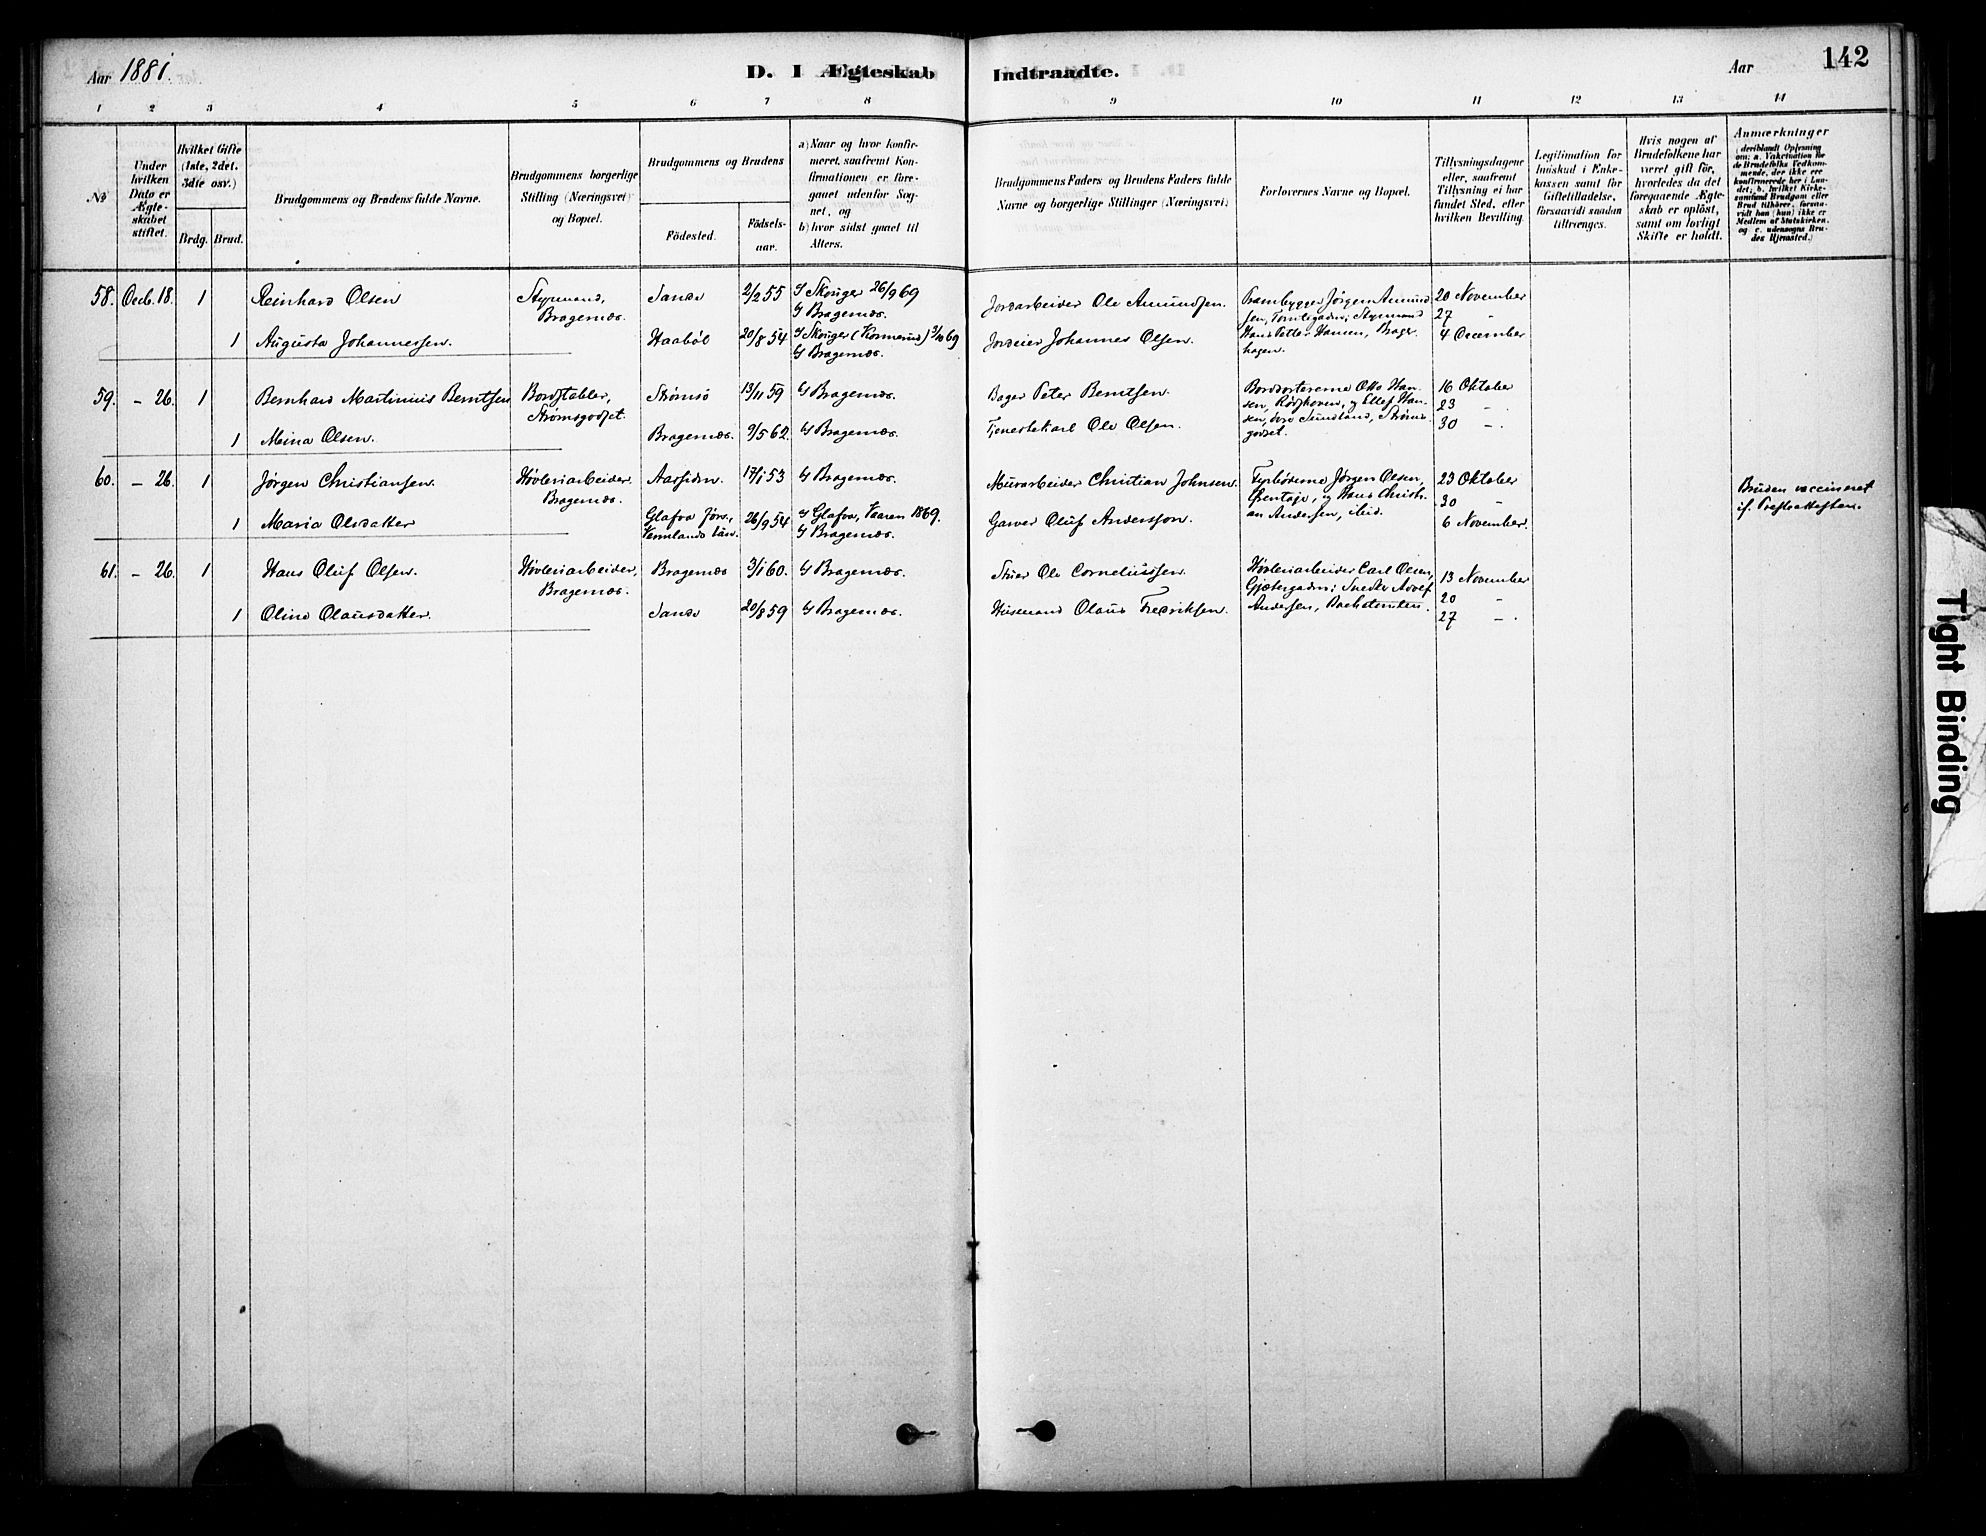 Aar 1881.
D. I Ægteskab Indtraadte.
Aar
142
1 2 3 4 5 6 7 8 9 10 11 12 13 14
No
Under hvilken Dato er Ægteskabet stiftet.
Hvilket Gifte (1ste, 2det, 3die osv.)
Brdg. Brud.
Brudgommens og Brudens fulde Navne.
Brudgommens borgerlige Stilling (Næringsvei) og Bopæl.
Brudgommens og Brudens
Födested.
Födsels-aar.
a) Naar og hvor konfir-
meret, saafremt Kon-
firmationen er fore-
gaaet udenfor Sog-
net, og
b) hvor sidst gaaet til
Alters.
Brudgommens Faders og Brudens Faders fulde
Navne og borgerlige Stillinger (Næringsvei)
Forlovernes Navne og Bopæl.
Tillysningsdagene
eller, saafremt
Tillysning ei har
fundet Sted, efter
hvilken Bevilling.
Legitimation for
Indskud i Enke-
kassen samt for
Giftetilladelse,
forsaavidt saadan
tiltrænges.
Hvis nogen af
Brudefolkene har
været gift för,
hvorledes da det
foregaaende Ægte-
skab er oplöst,
samt om lovligt
Skifte er holdt.
Anmærkninger
(deriblandt Oplysning
om: a. Vakcination for
de Brudefolks Vedkom-
mende, der ikke ere
konfirmerede her i Lan-
det; b. hvilket Kirke-
samfund Brudgom eller
Brud tilhører, forsaa-
vidt han (hun) ikke er
Medlem af Statskirken,
og c. udensogns Bru-
des Hjemsted.)
58. Decb. 18. 1 Reinhard Olsen Styrmand, Bragernæs. Sande 2/2 55 I Skouger 26/9 69 I Bragernæs. Jordarbeider Ole Amundsen. Prambygger Jørgen Amund-
sen, Tomtegaden; Styrmand
Hans Petter Hansen, Brager-
hagen.
20 November
27 "
4 December
1 Augusta Johannessen. Haabøl 20/8 54 I Skouger (Konnerud) 3/10 69 I Bragernæs. Jordeier Johannes Olsen.
59. - 26. 1 Bernhard Martinius Berntsen Bordstabler, Strømsgodset. Strømsö 13/11 59 I Bragernæs. Bager Peter Berntsen. Bordsorterene Otto Han-
sen, Rødskoven, og Ellef Han-
sen, Sundland, Strøms-
godset.
16 Oktober
23 -
30 -
1 Mina Olsen. Bragernæs. 9/5 62. I Bragernæs. Tjenestekarl Ole Olsen.
60. - 26. 1 Jørgen Christiansen. Høvleriarbeider Bragernæs. Aassiden 17/1 53 I Bragernæs. Murarbeider Christian Johnsen. Fyrbøderne Jørgen Olsen,
og Hans Christi-
an Andersen, ibid.
23 Oktober
30 "
6 November.
1 Maria Olsdatter Glafva förs., Vermlands Län. 26/9 54 I Glafva, Vaaren 1869. I Bragernæs. Garver Oluf Andersson.
Bruden vaccineret
if. Præsteattesten.
61. - 26. 1 Hans Oluf Olsen. Høvleriarbeider, Bragernæs. Bragernæs 3/1 60. I Bragernæs. Stuer Ole Corneliussen. Høvleriarbeider Carl Olsen,
Gjætergaden; Snedker Adolf
Andersen, Bachetomten.
13 November
20 "
27 -
1 Oline Olausdatter. Sande 20/8 59 I Bragernæs. Husmand Olaus Fredriksen.
Tight Binding